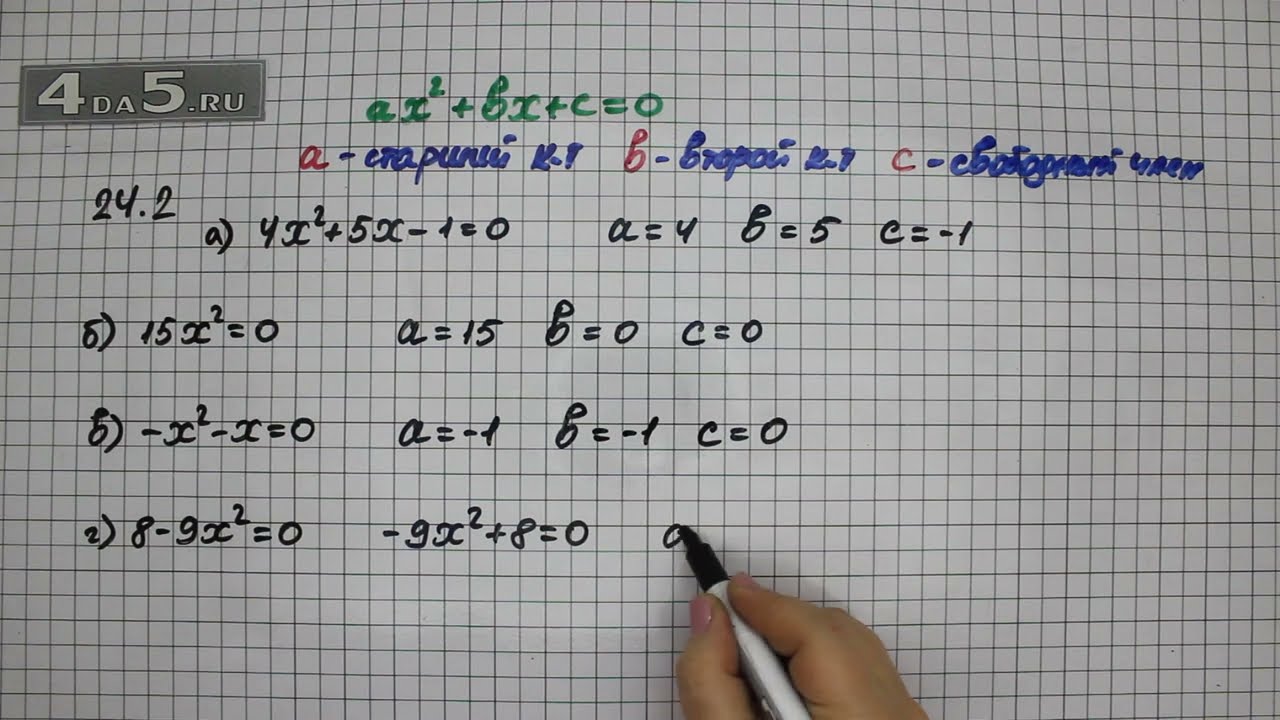 4DA5.RU
ax²+bx+c=0
a - старший к.т b - второй к.т c - свободный член
24.2
а) 4x²+5x-1=0 a=4 b=5 c=-1
б) 15x²=0 a=15 b=0 c=0
в) -x²-x=0 a=-1 b=-1 c=0
г) 8-9x²=0 -9x²+8=0 a